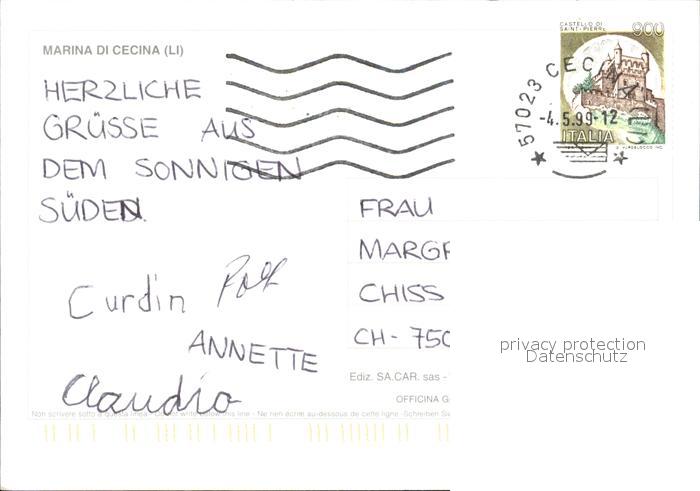 MARINA DI CECINA (LI)
HERZLICHE
GRÜSSE AUS
DEM SONNIGEN
SÜDEN.
Curdin Rolf
ANNETTE
Claudio
CASTELLO DI
SAINT-PIERRE
900
57023 CECINA (LI)
-4.5.99-12
ITALIA
FRAU
MARGR
CHISS
CH- 750
privacy protection
Datenschutz
Ediz. SA.CAR. sas -
OFFICINA G
Non scrivere sotto a questa linea - Do not write below this line - Ne rien écrire au-dessous de cette ligne - Schreiben Sie